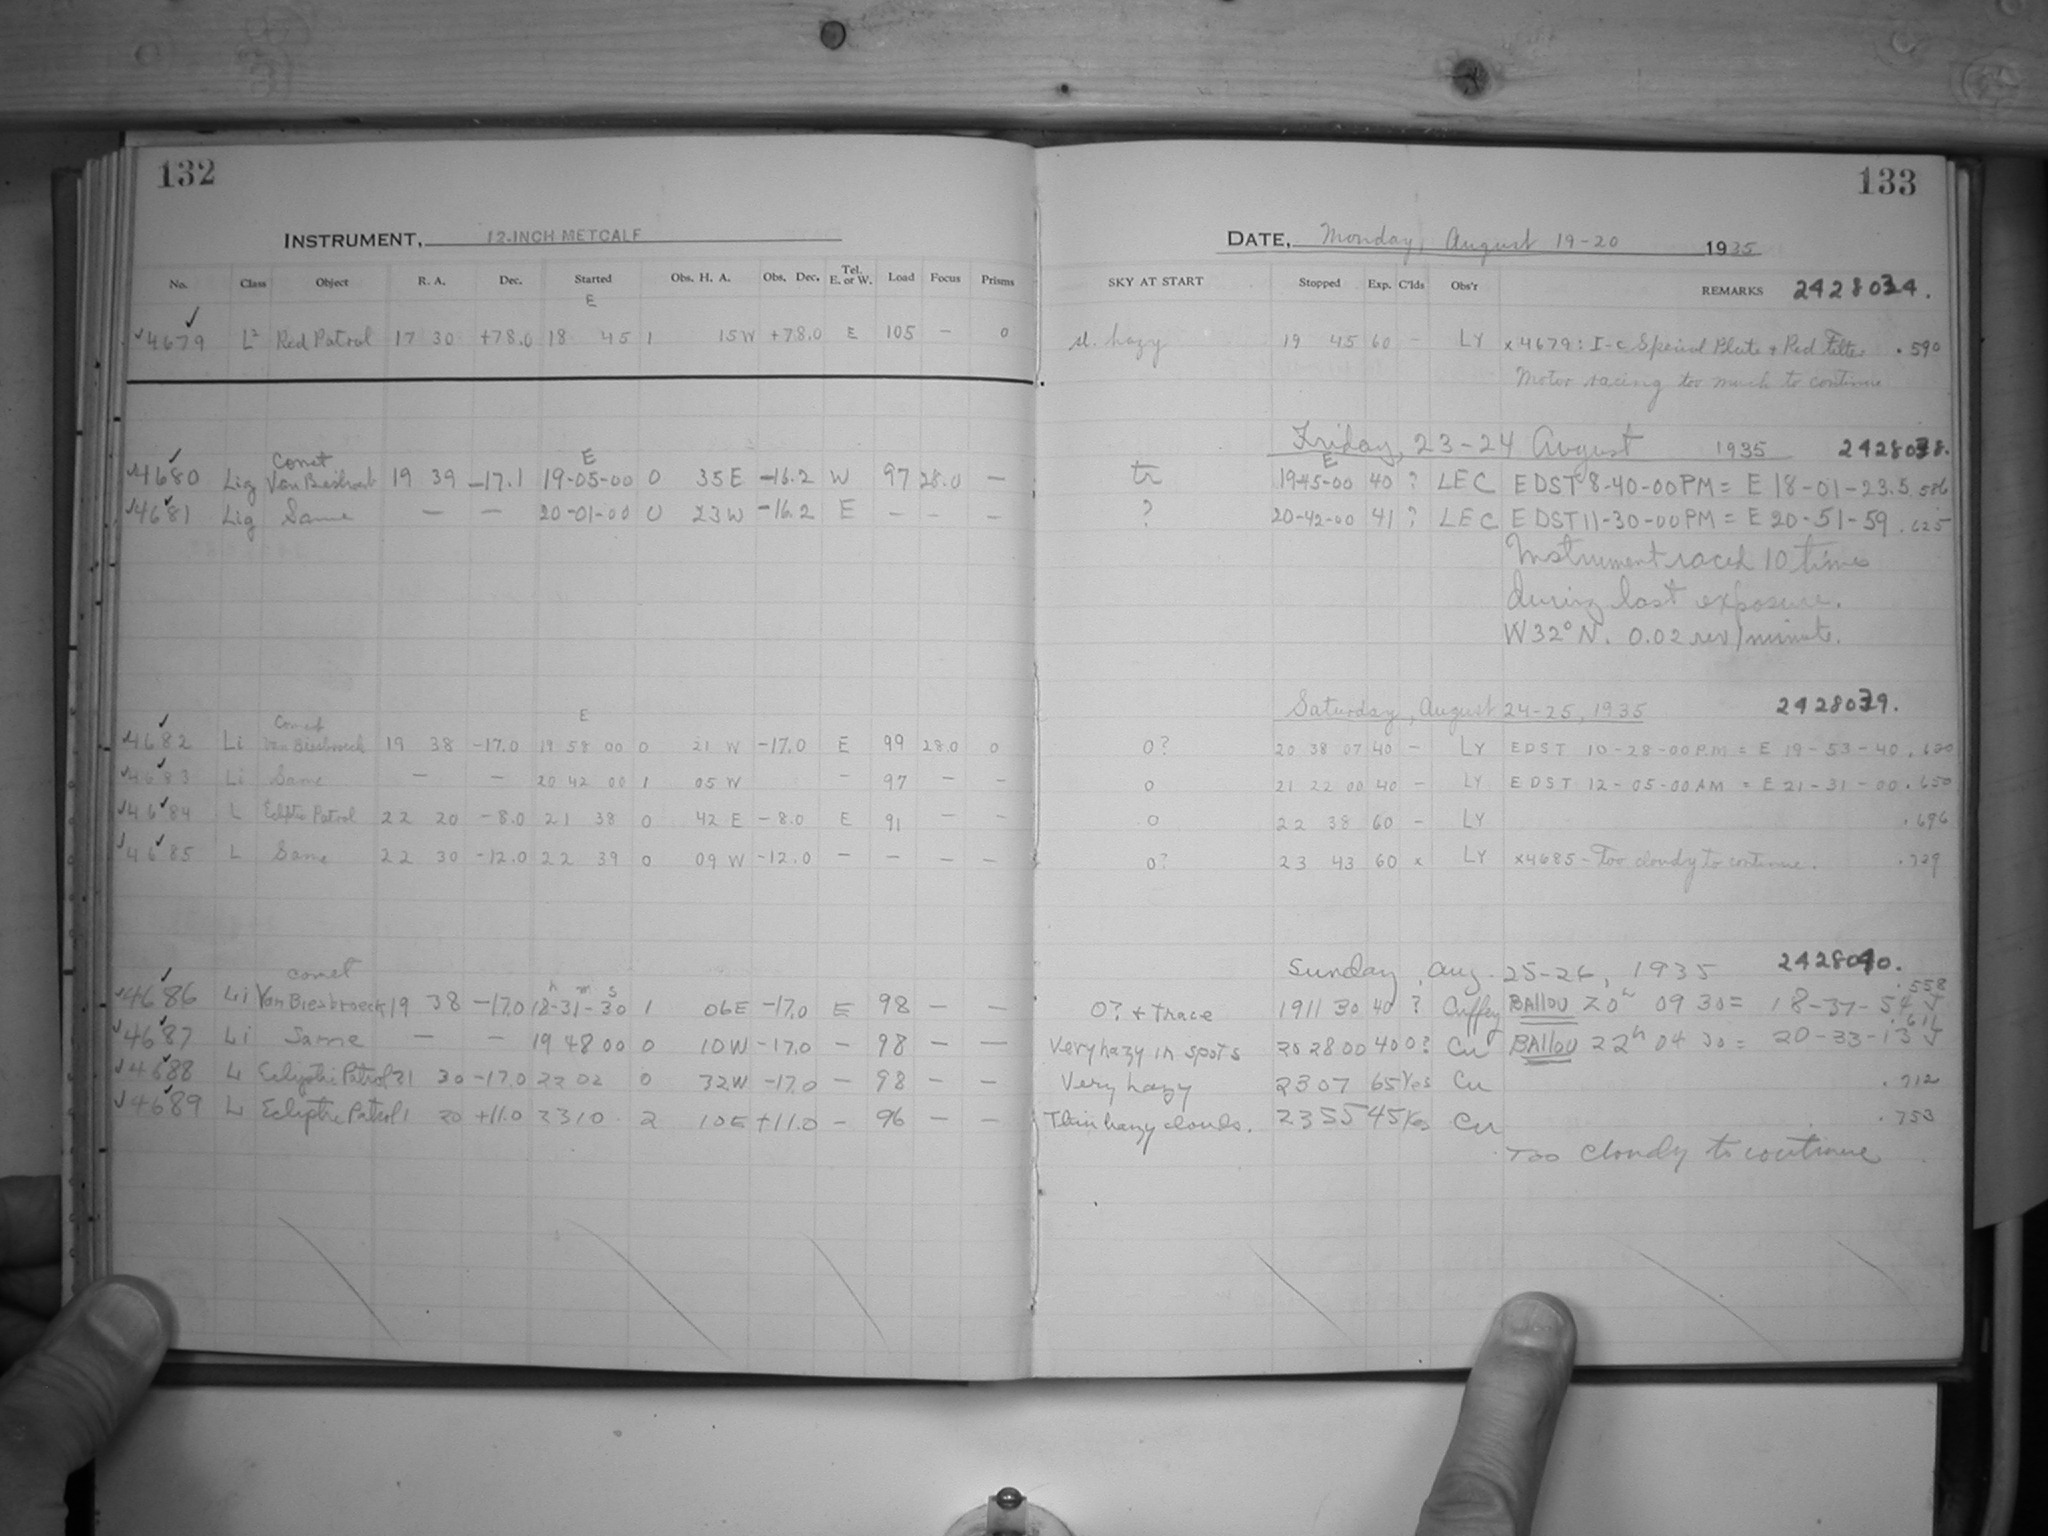 132
INSTRUMENT, 12-INCH METCALF
No. Class Object R. A. Dec. Started Obs. H. A. Obs. Dec. Tel. E. or W. Load Focus Prisms
E
4679 L² Red Patrol 17 30 +78.0 18 45 1 15W +78.0 E 105 — 0
Comet E
4680 Lig Van Biesbroeck 19 39 -17.1 19-05-00 0 35E -16.2 W 97 28.0 —
4681 Lig Same — — 20-01-00 0 23W -16.2 E — — —
Comet E
4682 Li Van Biesbroeck 19 38 -17.0 19 58 00 0 21 W -17.0 E 99 28.0 0
4683 Li Same — — 20 42 00 1 05 W — 97 — —
4684 L Ecliptic Patrol 22 20 -8.0 21 38 0 42 E -8.0 E 91 — —
4685 L Same 22 30 -12.0 22 39 0 09 W -12.0 — — — —
comet h m s
4686 Li Van Biesbroeck 19 38 -17.0 18-31-30 1 06E -17.0 E 98 — —
4687 Li Same — — 19 48 00 0 10W -17.0 — 98 — —
4688 L Ecliptic Patrol 21 30 -17.0 22 02 0 32W -17.0 — 98 — —
4689 L Ecliptic Patrol 1 20 +11.0 23 10 2 10E +11.0 — 96 — —
133
DATE, Monday, August 19-20 1935
SKY AT START Stopped Exp. C'lds Obs'r REMARKS 2428034.
sl. hazy 19 45 60 — LY x 4679: I-C Special Plate + Red Filter .590
Motor racing too much to continue
Friday, 23-24 August 1935 2428038.
E
tr 19-45-00 40 ? LEC EDST 8-40-00 PM = E 18-01-23.5 .586
? 20-42-00 41 ? LEC EDST 11-30-00 PM = E 20-51-59 .625
Instrument raced 10 times
during last exposure.
W 32° N. 0.02 rev/minute.
Saturday, August 24-25, 1935 2428039.
0? 20 38 07 40 — LY EDST 10-28-00 PM = E 19-53-40 .620
0 21 22 00 40 — LY EDST 12-05-00 AM = E 21-31-00 .650
0 22 38 60 — LY .696
0? 23 43 60 x LY x4685 - Too cloudy to continue. .739
Sunday, Aug. 25-26, 1935 2428040.
.558
0? + trace 19 11 30 40 ? Cuffey BALLOU 20h 09 30 = 18-37-54
.611
Very hazy in spots 20 28 00 40 0? Cu BALLOU 22h 04 30 = 20-33-13
Very hazy 23 07 65 Yes Cu .712
Thin hazy clouds. 23 55 45 Yes Cu .753
Too cloudy to continue